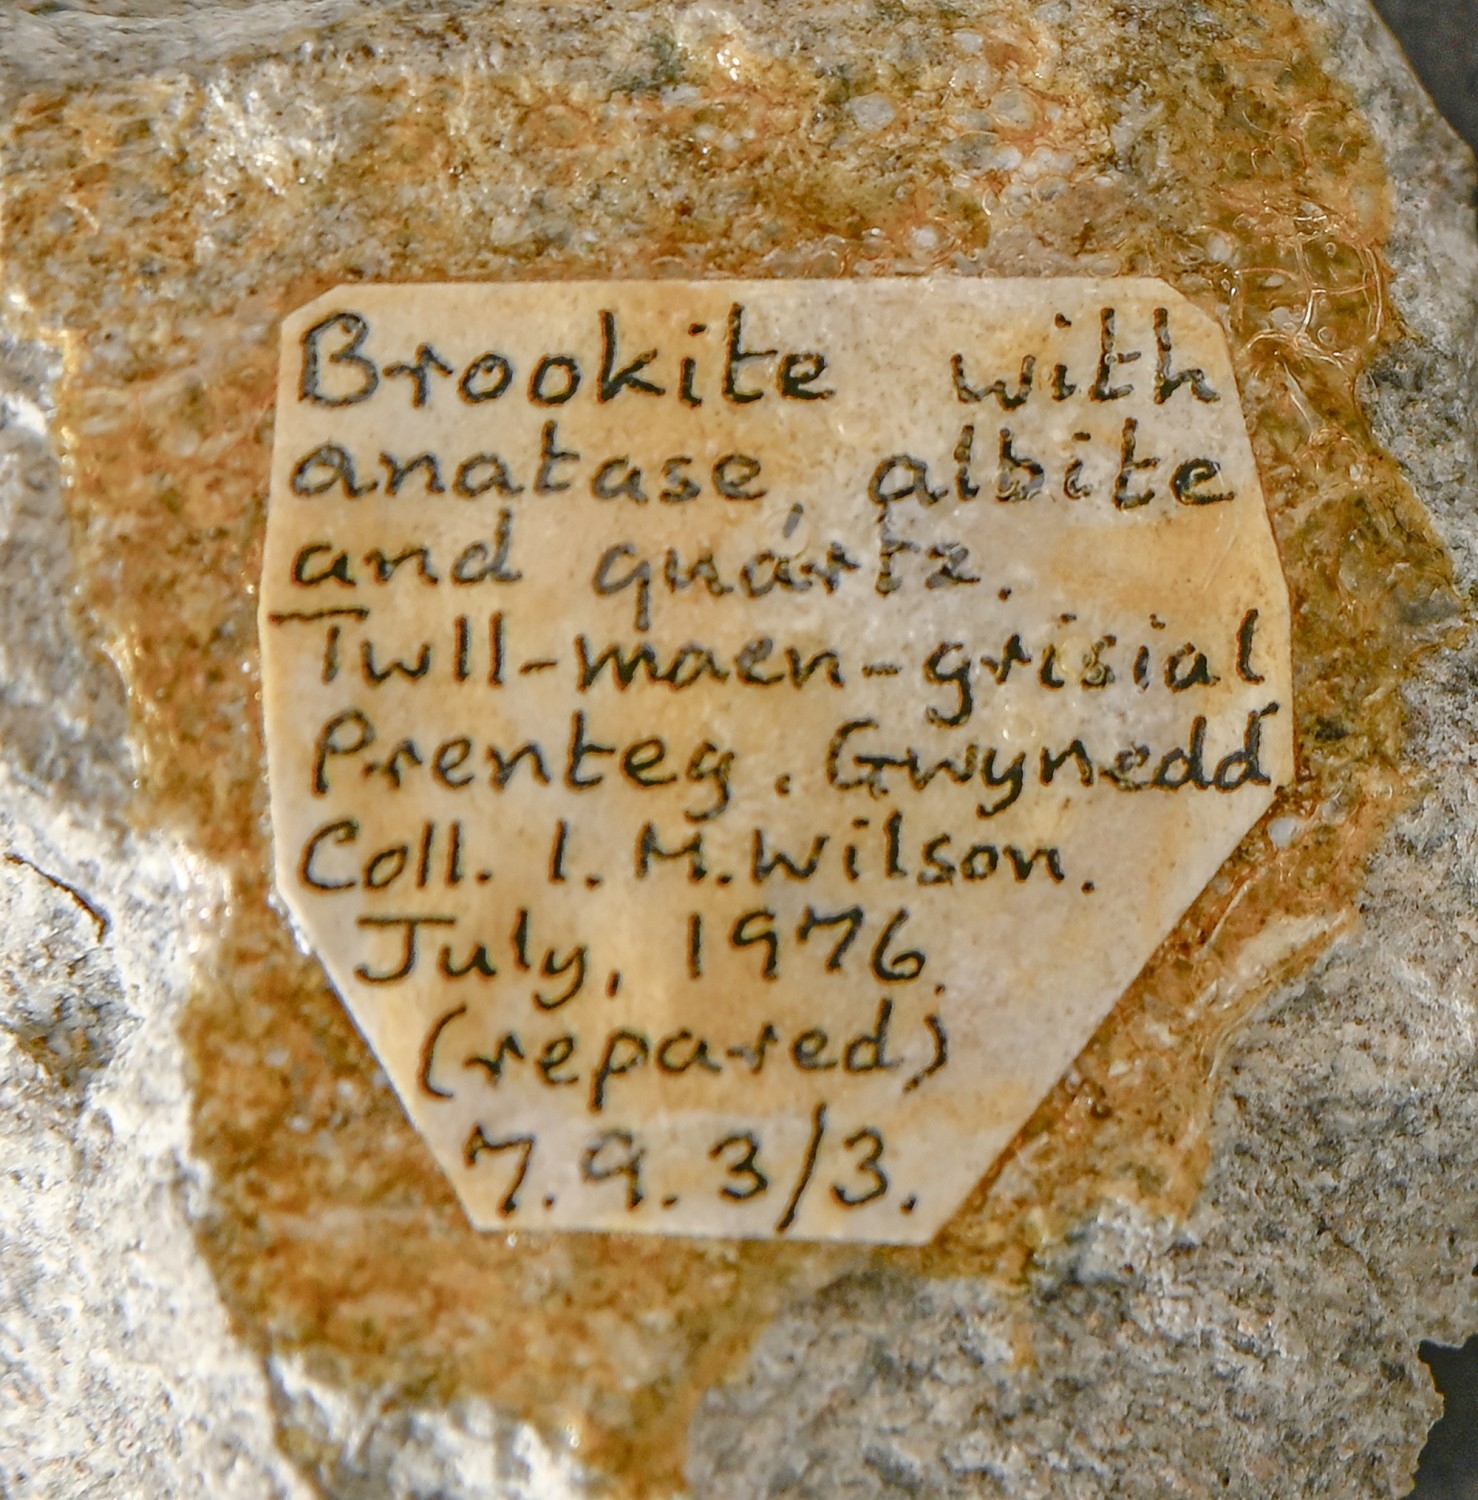 Brookite with
anatase, albite
and quartz.
Twll-maen-grisial
Prenteg. Gwynedd.
Coll. I. M. Wilson.
July, 1976.
(repared)
7.9.3/3.